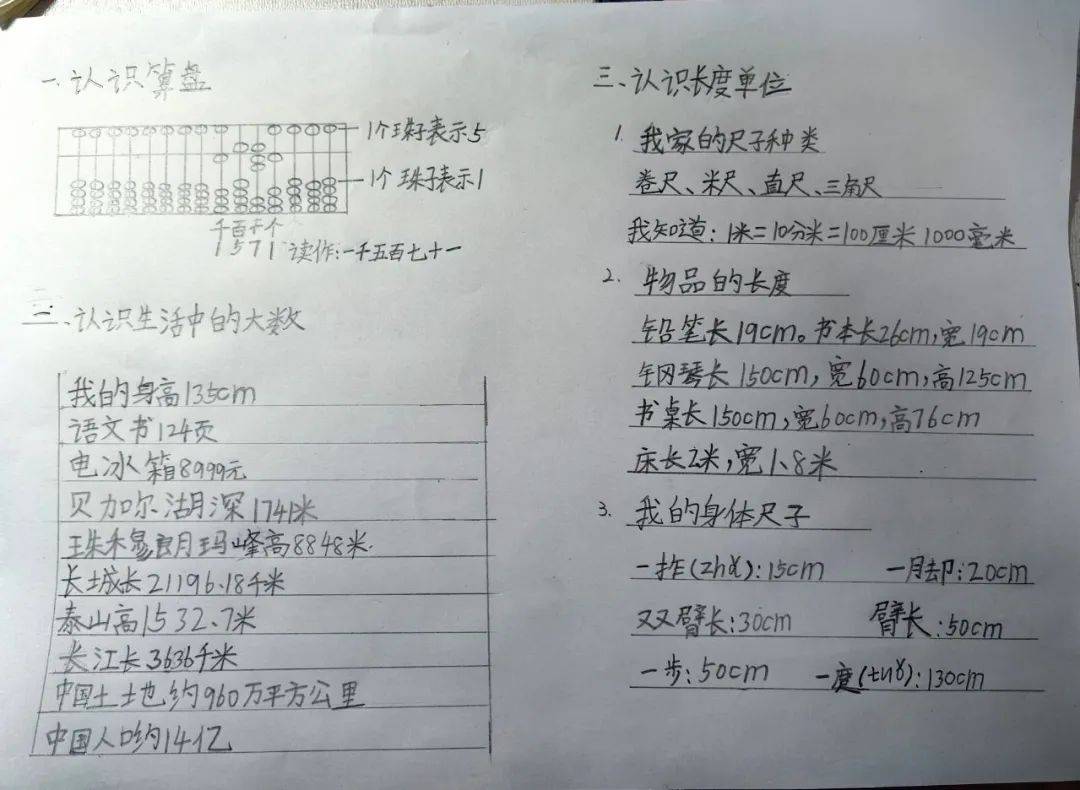 一、认识算盘
1个珠子表示5
1个珠子表示1
千百十个
1571 读作:一千五百七十一
二、认识生活中的大数
我的身高135cm
语文书124页
电冰箱8999元
贝加尔湖深1741米
珠穆朗玛峰高8848米.
长城长21196.18千米
泰山高1532.7米
长江长3636千米
中国土地约960万平方公里
中国人口约14亿
三、认识长度单位
1. 我家的尺子种类
卷尺、米尺、直尺、三角尺
我知道:1米=10分米=100厘米 1000毫米
2. 物品的长度
铅笔长19cm。书本长26cm,宽19cm
钢琴长150cm,宽60cm,高125cm
书桌长150cm,宽60cm,高76cm
床长2米,宽1.8米
3. 我的身体尺子
一拃(zhǎ):15cm 一脚:20cm
双臂长:30cm 臂长:50cm
一步:50cm 一度(tuǒ):130cm